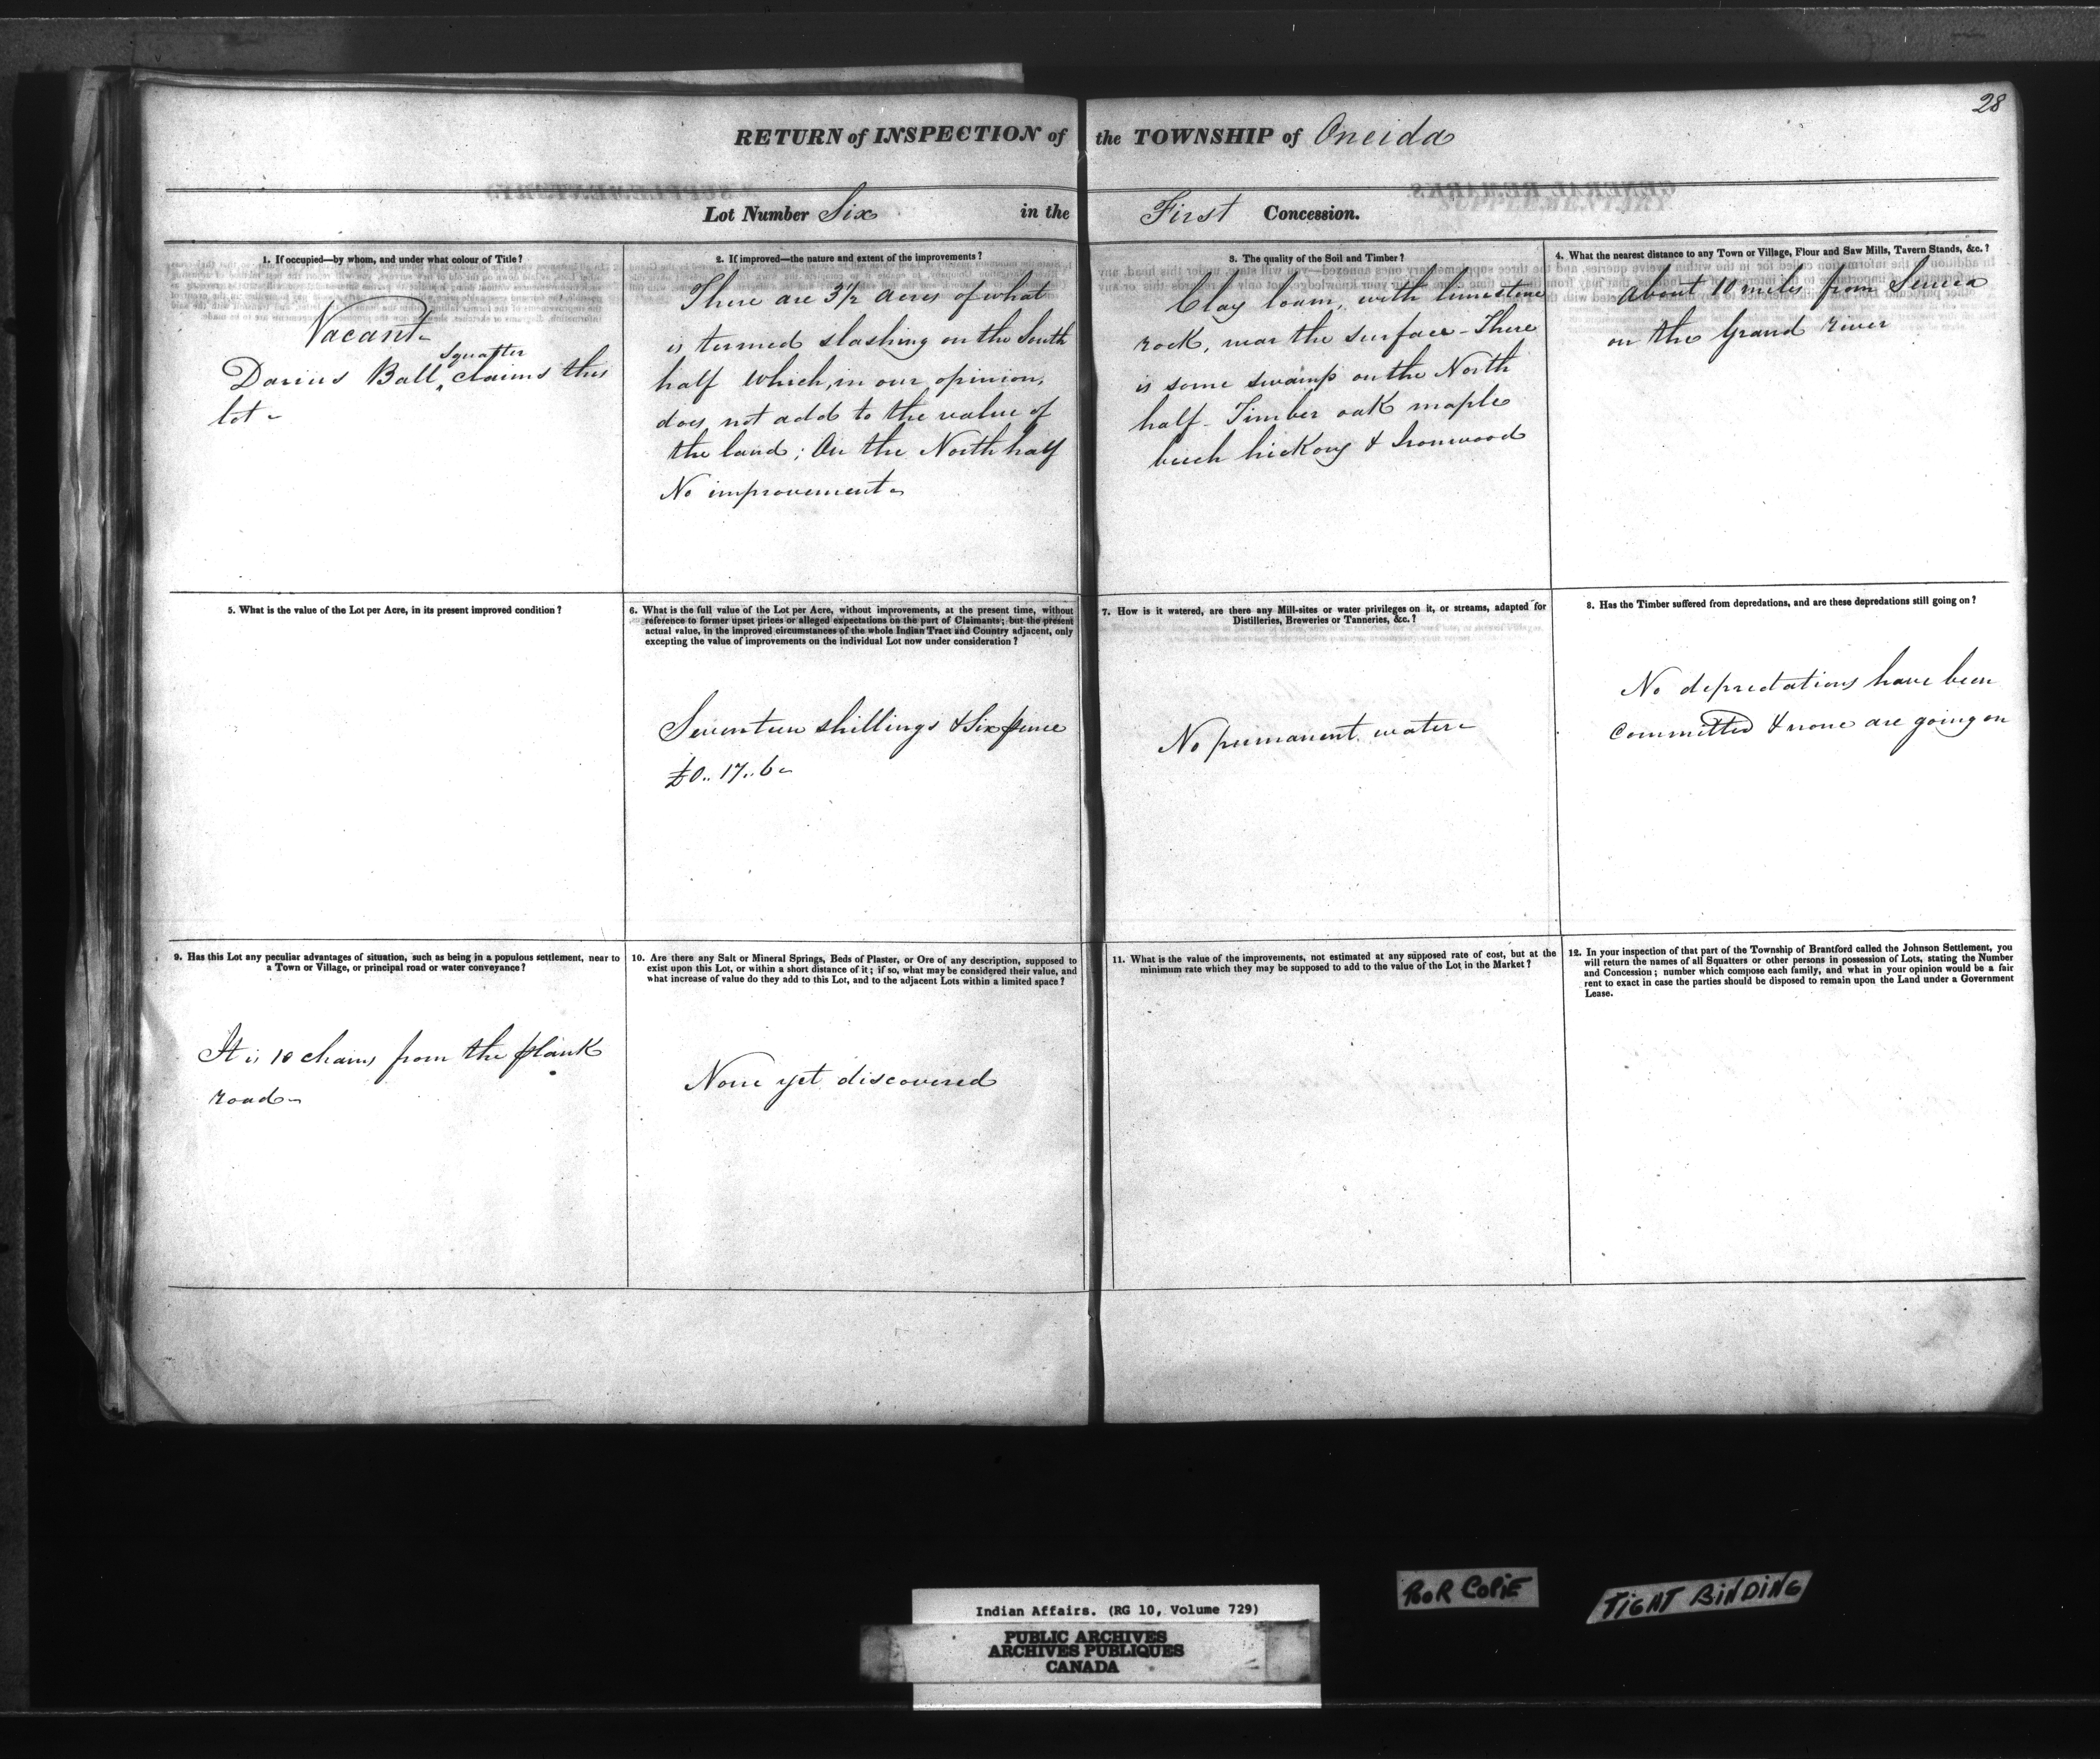 28
RETURN of INSPECTION of the TOWNSHIP of Oneida
Lot Number Six in the First Concession.
1. If occupied—by whom, and under what colour of Title?
Vacant
Squatter
Darius Ball, claims this
lot
2. If improved—the nature and extent of the improvements?
There are 3½ acres of what
is termed slashing on the South
half which, in our opinion,
does not add to the value of
the land; On the North half
No improvement
3. The quality of the Soil and Timber?
Clay loam, with limestone
rock, near the surface - There
is some swamp on the North
half - Timber oak maple
beech hickory & Ironwood
4. What the nearest distance to any Town or Village, Flour and Saw Mills, Tavern Stands, &c.?
About 10 miles from Seneca
on the Grand river
5. What is the value of the Lot per Acre, in its present improved condition?
6. What is the full value of the Lot per Acre, without improvements, at the present time, without
reference to former upset prices or alleged expectations on the part of Claimants; but the present
actual value, in the improved circumstances of the whole Indian Tract and Country adjacent, only
excepting the value of improvements on the individual Lot now under consideration?
Seventeen shillings & Six pence
£0.. 17.. 6
7. How is it watered, are there any Mill-sites or water privileges on it, or streams, adapted for
Distilleries, Breweries or Tanneries, &c.?
No permanent water
8. Has the Timber suffered from depredations, and are these depredations still going on?
No depredations have been
Committed & none are going on
9. Has this Lot any peculiar advantages of situation, such as being in a populous settlement, near to
a Town or Village, or principal road or water conveyance?
It is 10 chains from the plank
road
10. Are there any Salt or Mineral Springs, Beds of Plaster, or Ore of any description, supposed to
exist upon this Lot, or within a short distance of it; if so, what may be considered their value, and
what increase of value do they add to this Lot, and to the adjacent Lots within a limited space?
None yet discovered
11. What is the value of the improvements, not estimated at any supposed rate of cost, but at the
minimum rate which they may be supposed to add to the value of the Lot in the Market?
12. In your inspection of that part of the Township of Brantford called the Johnson Settlement, you
will return the names of all Squatters or other persons in possession of Lots, stating the Number
and Concession; number which compose each family, and what in your opinion would be a fair
rent to exact in case the parties should be disposed to remain upon the Land under a Government
Lease.
Indian Affairs. (RG 10, Volume 729)
PUBLIC ARCHIVES
ARCHIVES PUBLIQUES
CANADA
POOR COPIE
TIGHT BINDING